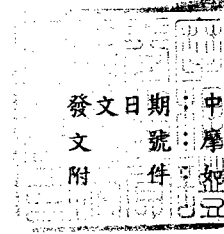 發文日期：中
文號：摩
附件：如